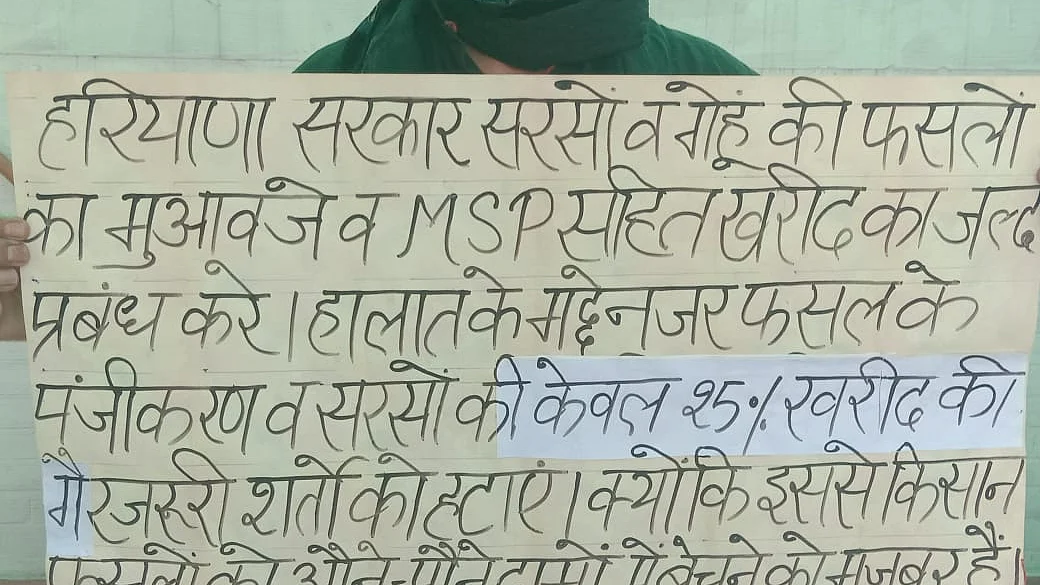 हरियाणा सरकार सरसों व गेहूं की फसलों
का मुआवजे व MSP सहित खरीद का जल्द
प्रबंध करे। हालात के मद्देनजर फसल के
पंजीकरण व सरसों की केवल 25% खरीद की
गैरजरूरी शर्तो को हटाएं। क्योंकि इससे किसान
फसलों को औने-पौने दामों में बेचने को मजबूर हैं।